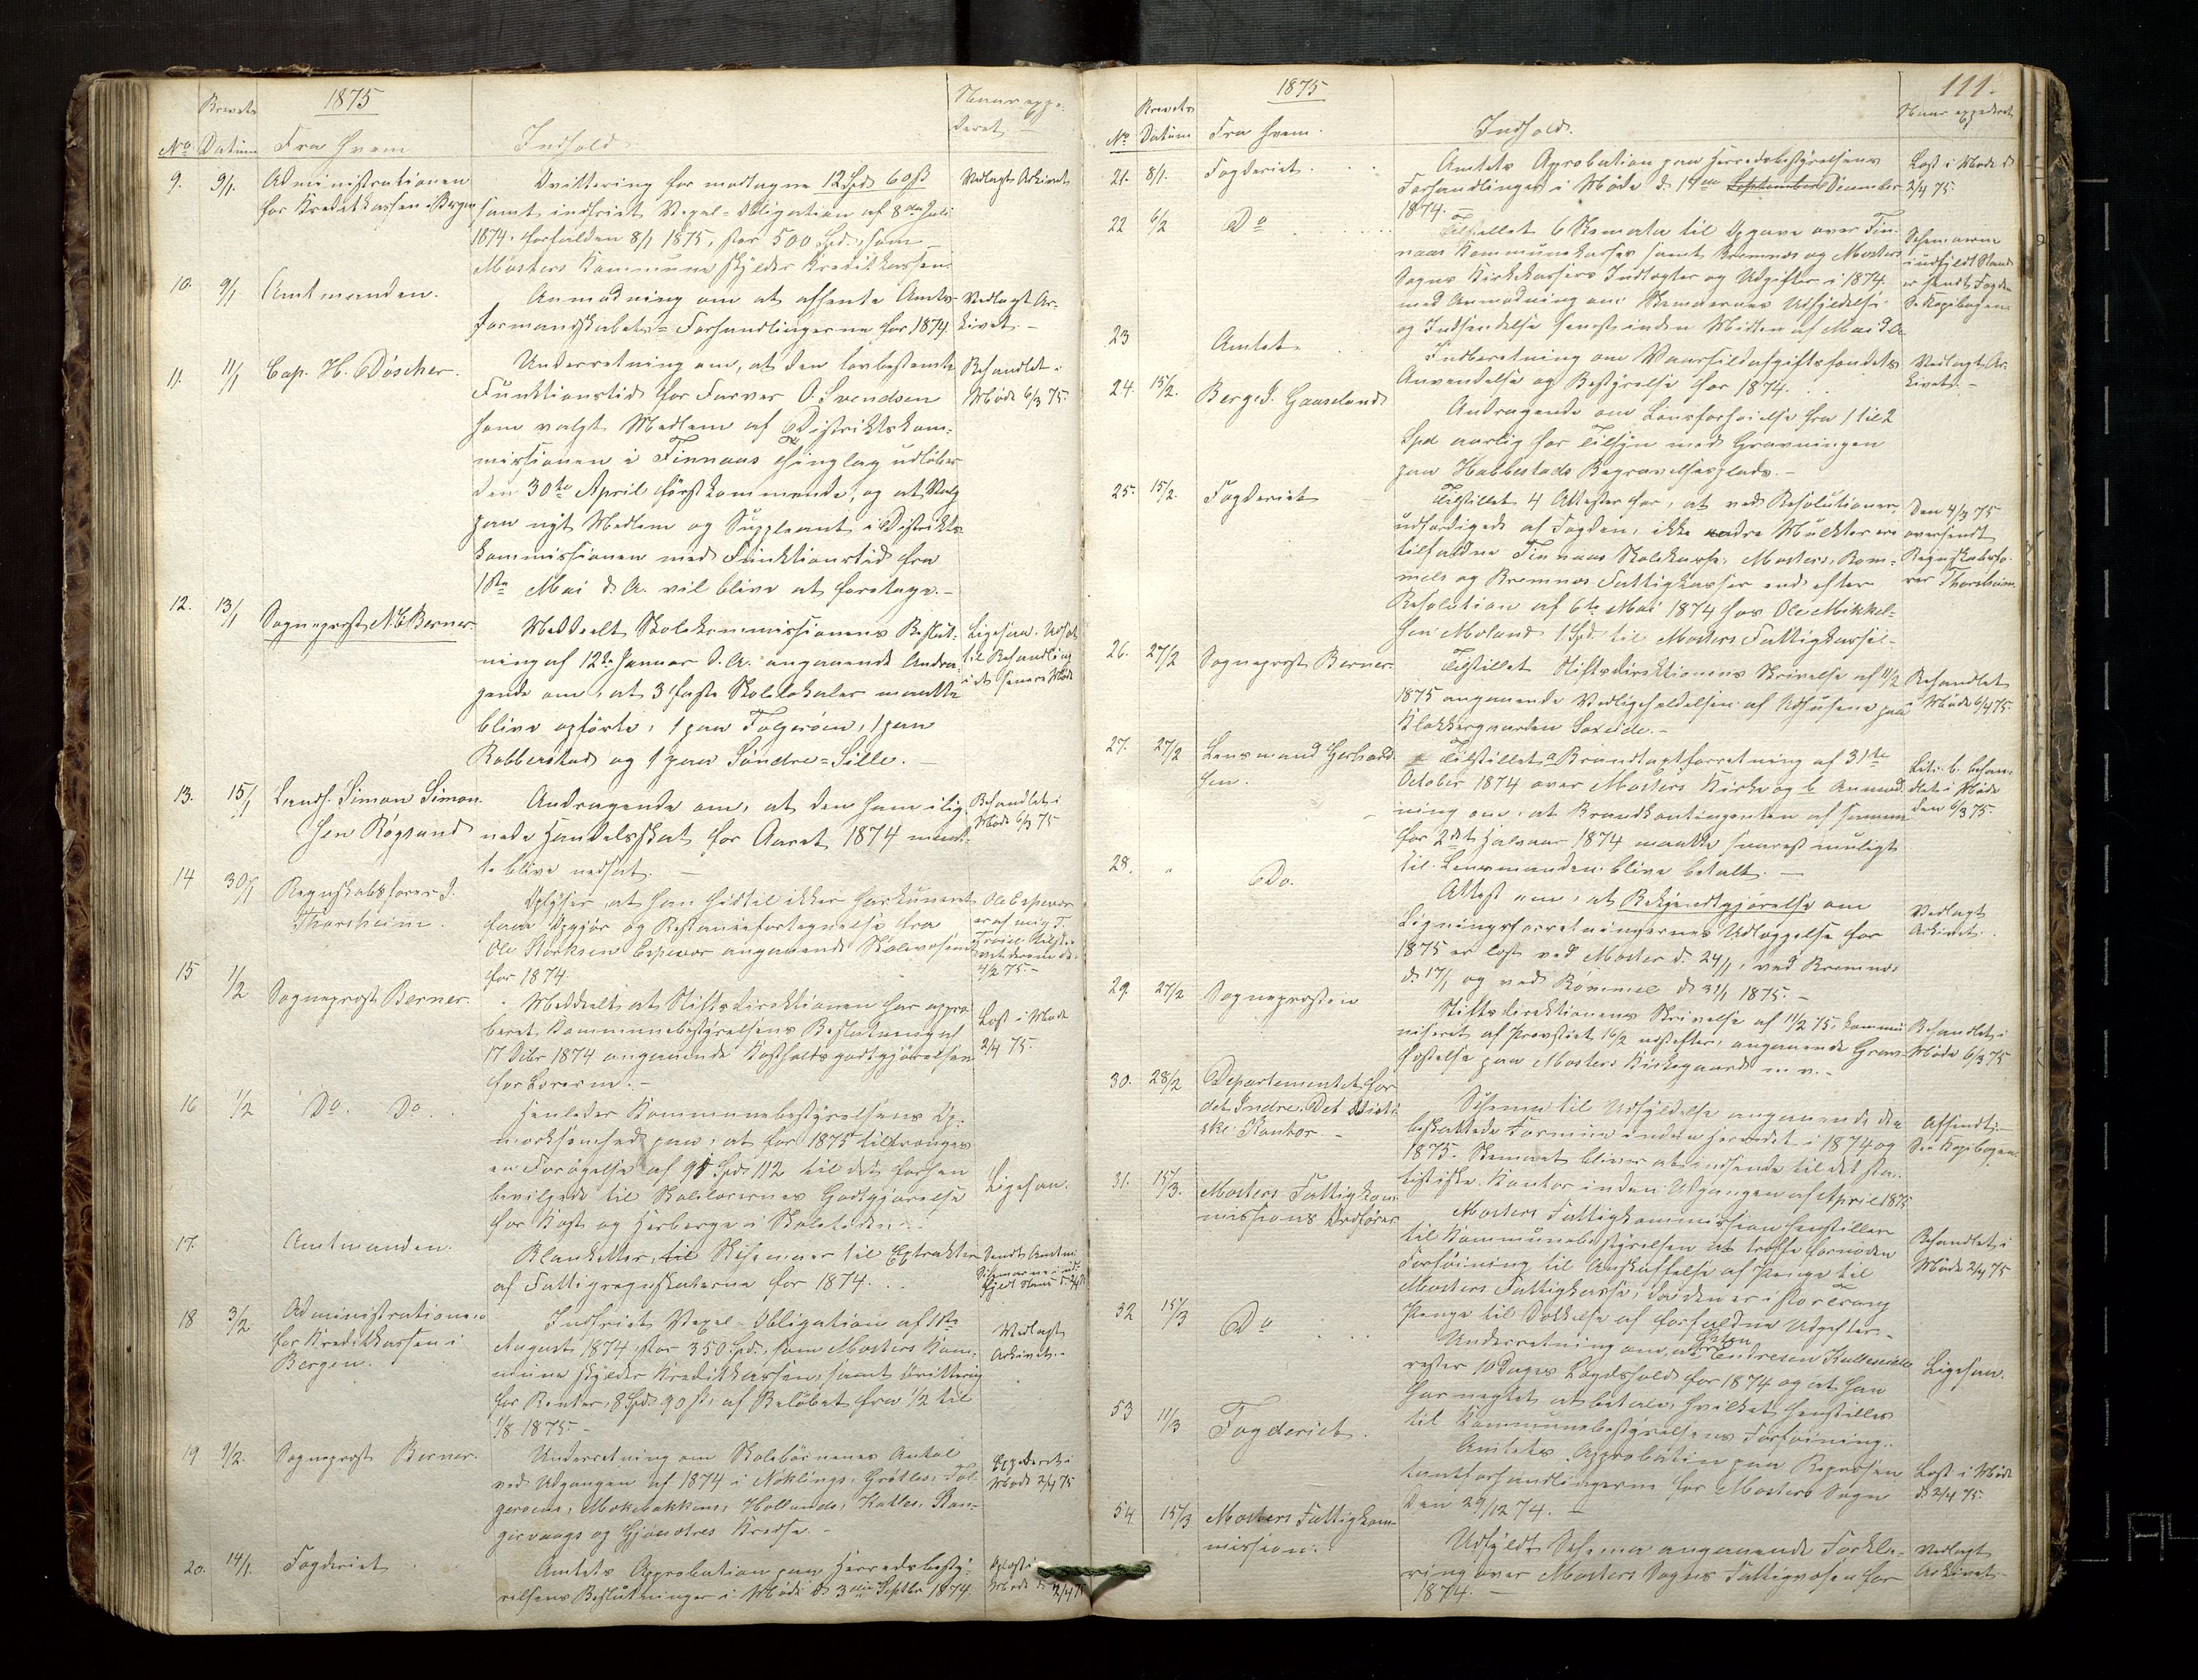 1875
Brevets
Naar expe-
deret. —
No Datum Fra hvem
Indhold
9. 9/1. Administrationen
for Kreditkassen i Bergen
Qvittering for modtagne 12 Spd 60 ß
samt indfriet Vexel-Obligation af 8de Juli
1874, forfalden 8/1 1875, stor 500 Spd., som
Mosters Kommune skylder Kreditkassen.
Vedlagt Arkivet
10. 9/1 Amtmanden.
Anmodning om at afhente Amts-
formandskabets-Forhandlingerne for 1874.
Vedlagt Ar-
kivet. —
11. 11/1 Cap. H. Döscher.
Underretning om, at den lovbestemte
Funktionstid for Farver O. Svendsen
som valgt Medlem af Distriktskom-
missionen i Finnaas Thinglag udløber
den 30te April førstkommende, og at Valg
paa nyt Medlem og Suppleant i Distrikts
kommissionen med Funktionstid fra
1ste Mai d. A. vil blive at foretage. —
Behandlet i
Møde 6/3 75.
12. 13/1 Sogneprest N. C. Berner.
Meddeelt Skolekommissionens Beslut-
ning af 12te Januar d. A. angaaende Andra-
gende om, at 3 faste Skolelokaler maatte
blive opførte, 1 paa Folgerøen, 1 paa
Robberstad og 1 paa Søndre-Sille. —
Ligesaa. Udsat
til Behandling
i et senere Møde
13. 15/1 Landh. Simon Simon-
sen Røgsund
Andragende om, at den ham ilig-
nede Handelsskat for Aaret 1874 maat-
te blive nedsat. —
Behandlet i
Møde 6/3 75
14 30/1 Regnskabsfører J.
Thorsheim.
Oplyser, at han hidtil ikke har kunnet
faae Opgjør og Restancefortegnelse fra
Ole Størksen Espevær angaaende Skolevæsenet
for 1874.
Ole Espevær
er af mig T.
4/2 75. —
15 1/2 Sogneprest Berner.
Meddeelt at Stiftsdirektionen har appro-
beret Kommunebestyrelsens Beslutning af
17 Decbr 1874 angaaende Kostholdsgodtgjørelsen
for Lærerne. —
Læst i Møde
2/4 75.
16 1/2 Do. Do.
Henleder Kommunebestyrelsens Op-
mærksomhed paa, at for 1875 tiltrænges
en Forøgelse af 91 Spd 112 til det forhen
bevilgede til Skolelærernes Godtgjørelse
for Kost og Herberge i Skoletiden. —
Ligesaa.
17. Amtmanden.
Blanketter til Skemaer til Extrakter
af Fattigregnskaberne for 1874.
Sendt Amtm.
18 3/2 Administrationen
for Kreditkassen i
Bergen.
Indfriet Vexel-Obligation af 1ste
August 1874, stor 350 Spd., som Mosters Kom-
mune skylder Kreditkassen, samt Qvittering
for Renter, 8 Spd. 90 ß, af Beløbet fra 1/2 til
1/8 1875. —
Vedlagt
Arkivet. —
19 9/2. Sogneprest Berner.
Underretning om Skolebørnenes Antal
ved Udgangen af 1874 i Nøklings, Grøtles, Fol-
gerøens, Mokebakkens, Hollunds, Kalles, Ran-
gervaags og Gjøsøtres Kredse. —
Expederet i
Møde 2/4 75
20. 14/1. Fogderiet
Amtets Approbation paa Herredsbesty-
relsens Beslutninger i Møde d. 3die Septbr 1874.
Oplæst i
Møde d. 2/4 75
111.
1875
Brevets
Naar expederet
No Datum Fra hvem.
Indhold.
21. 8/1. Fogderiet
Amtets Approbation paa Herredsbestyrelsens
Forhandlinger i Møde d. 17de September December
1874. —
Læst i Møde d
2/4 75.
22 6/2 Do
Tilstillet 6 Skemata til Opgave over Fin-
naas Kommunekasses samt Bremnes og Mosters
Sogns Kirkekassers Indtægter og Udgifter i 1874.
med Anmodning om Skemaernes Udfyldelse
og Indsendelse senest inden Midten af Mai d. A.
Schemaerne
i udfyldt Stand
er sendt Fogden
Se Kopibogen
23 Amtet
Indberetning om Vaarsildafgiftsfondets
Anvendelse og Bestyrelse for 1874.
Vedlagt Ar-
kivet. —
24. 15/2. Berge J. Gaaseland
Andragende om Lønsforhøielse fra 1 til 2
Spd aarlig for Tilsyn med Gravningen
paa Habbestads Begravelsesplads. —
25. 15/2. Fogderiet
Tilstillet 4 Attester for, at ved Resolutioner
udfærdigede af Fogden, ikke andre Mulkter ere
tilfaldne Finnaas Skolekasse, Mosters, Røm-
mels og Bremnes Fattigkasser end efter
Resolution af 6te Mai 1874 hos Ole Mikkel-
sen Moland 1 Spd til Mosters Fattigkasse. —
Den 4/3 75
oversendt
Regnskabsfø-
rer Thorsheim
26. 27/2 Sogneprest Berner.
Tilstillet Stiftsdirektionens Skrivelse af 11/2
1875 angaaende Vedligeholdelsen af Udhusene paa
Klokkergaarden Søreide. —
Behandlet
i Møde 6/4 75.
27. 27/2 Lensmand Gerhard-
sen.
Tilstillet a Brandtaxtforretning af 31te
October 1874 over Mosters Kirke og b. Anmod-
ning om, at Brandkontingenten af samme
for 2det Halvaar 1874 maatte snarest muligt
til Lensmanden blive betalt. —
Litr. b. behan-
dlet i Møde
den 6/3 75.
28. " Do.
Attest om, at Bekjendtgjørelse om
Ligningsforretningernes Udlæggelse for
1875 er læst ved Moster d. 24/1, ved Bremnes
d. 17/1 og ved Rømmel d. 31/1 1875. —
Vedlagt
Arkivet.
29. 27/2 Sognepresten
Stiftsdirektionens Skrivelse af 11/2 75, kommu-
niceret af Provstiet 16/2 næstefter, angaaende Grav-
fæstelse paa Mosters Kirkegaard m. v. —
Behandlet i
Møde 6/3 75
30. 28/2 Departementet for
det Indre. Det stati-
ske Kontor —
Schema til Udfyldelse angaaende den
beskattede Formue inden Herredet i 1874 og
1875. Skemaet bliver at indsende til det sta-
tistiske Kontor inden Udgangen af April 1875
Afsendt. —
See Kopibogen.
31. 15/3. Mosters Fattigkom-
missions Ordfører
Mosters Fattigkommission henstiller
til Kommunebestyrelsen at træffe fornøden
Forføining til Anskaffelse af Penge til
Mosters Fattigkasse, da den er i stor Trang
Penge til Dækkelse af forfaldne Udgifter. —
Behandlet i
Møde 2/4 75
32 15/3 Do
Underretning om, at Endresen Kulleseidet
rester 10 Dages Lægdshold for 1874 og at han
har negtet at betale, hvilket henstilles
til Kommunebestyrelsens Forføining.
Ligesaa.
53 11/3 Fogderiet.
Amtets Approbation paa Repræsen-
tantforhandlingerne for Mosters Sogn
Den 29/12 74. —
Læst i Møde
d. 2/4 75.
54 15/3 Mosters Fattigkom-
mission.
Udfyldt Schema angaaende Forkla-
ring over Mosters Sogns Fattigvæsen for
1874. —
Vedlagt
Arkivet —